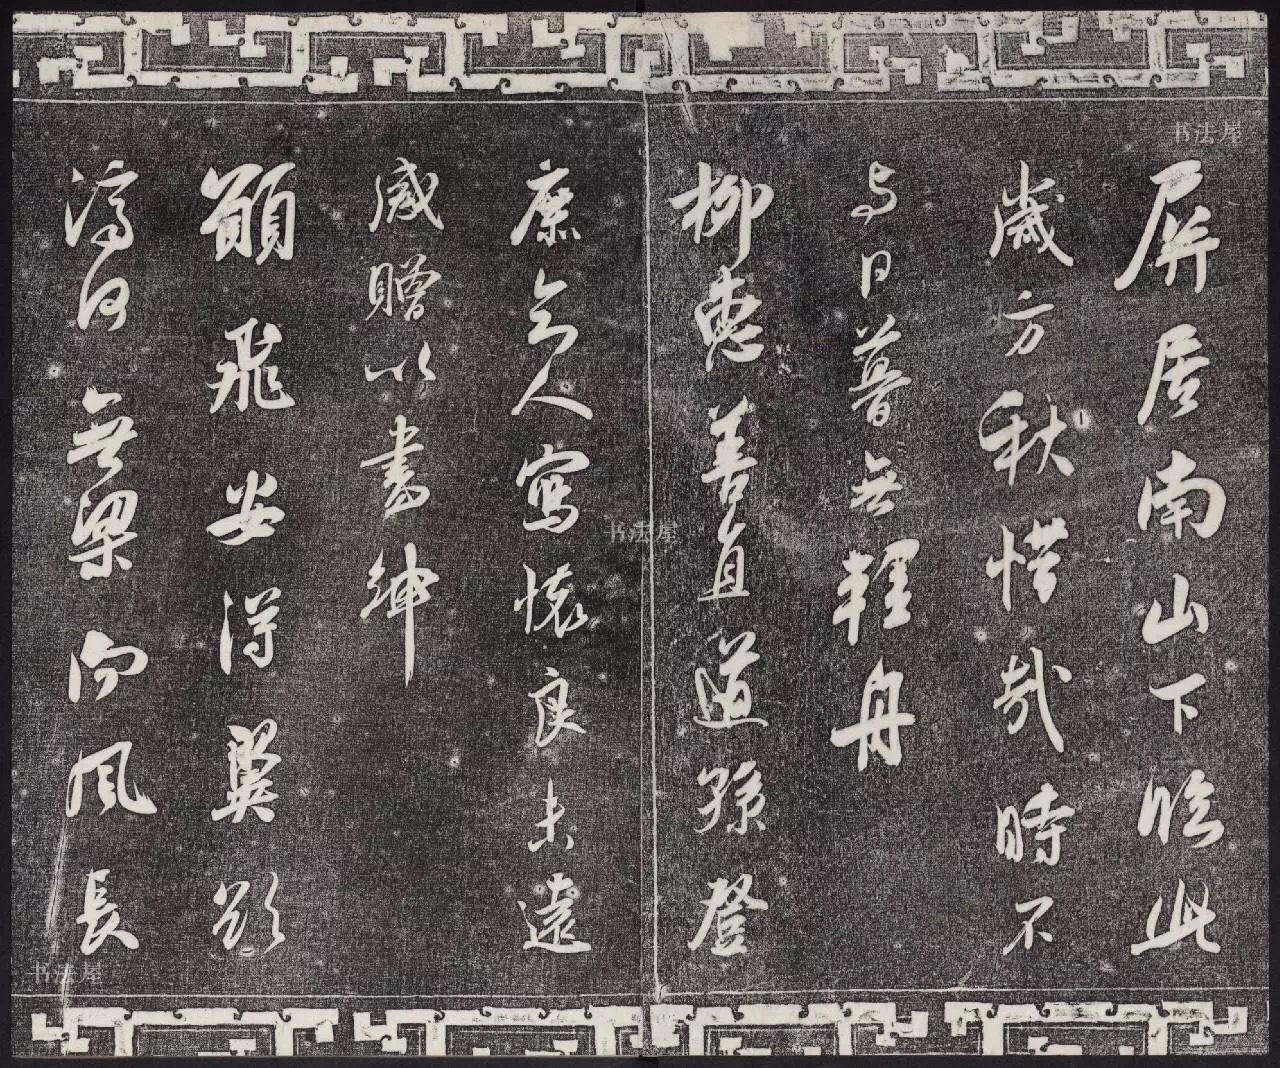 屏居南山下臨此
歲方秋惜哉時不
与日暮無輕舟
柳惠善直道孫登
庶知人寫懷良未遠
感贈以書紳
願飛安得翼欲
濟河無梁向風長
书法屋
书法屋
书法屋